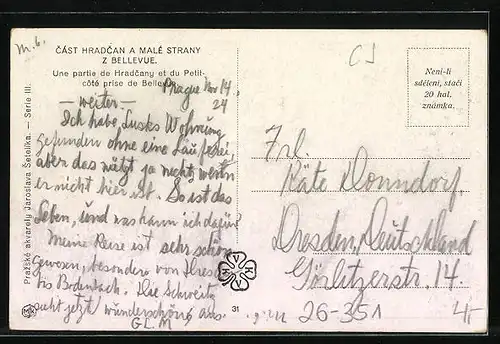 m. 6.
CJ
ČÁST HRADČAN A MALÉ STRANY
Z BELLEVUE.
Une partie de Hradčany et du Petit-
côté prise de Belle
Prague Nov 14.
24
– weiter –
Ich habe Lusks Wohnung
gefunden ohne eine Lauferei
aber das nützt ja nicht wenn
er nicht hier ist. So ist das
Leben, und was kann ich dafür
Meine Reise ist sehr schön
gewesen, besonders von Dres
bis Bodenbach. Die Schweitz
sieht jetzt wunderschön aus.
GL. M
Není-li
sdělení, stačí
20 hal.
známka.
Frl.
Käte Donndorf.
Dresden, Deutschland
Görlitzerstr. 14
26-351
4,-
31
Pražské akvarely Jaroslava Šetelíka. — Serie III.